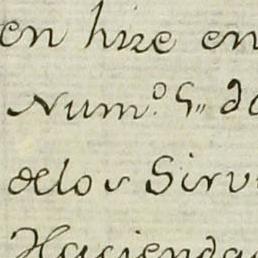 en hize en
Num.º 5,, de
delos Sirvi
Haciendas